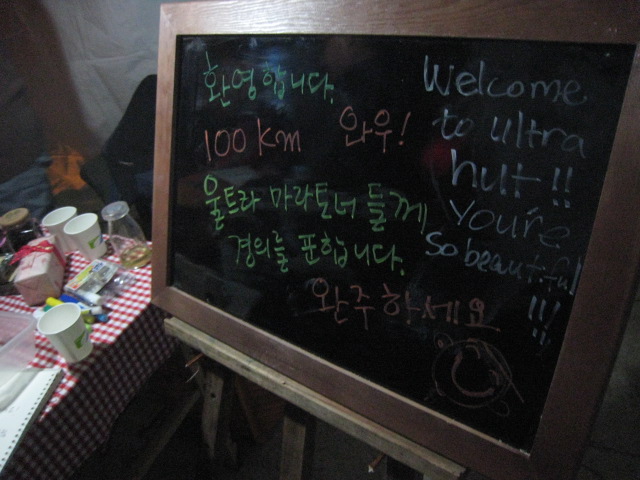 환영합니다.
100 km 와우!
울트라 마라토너들께
경의를 표합니다.
완주하세요
Welcome
to ultra
hut!!
You're
so beautiful
!!!